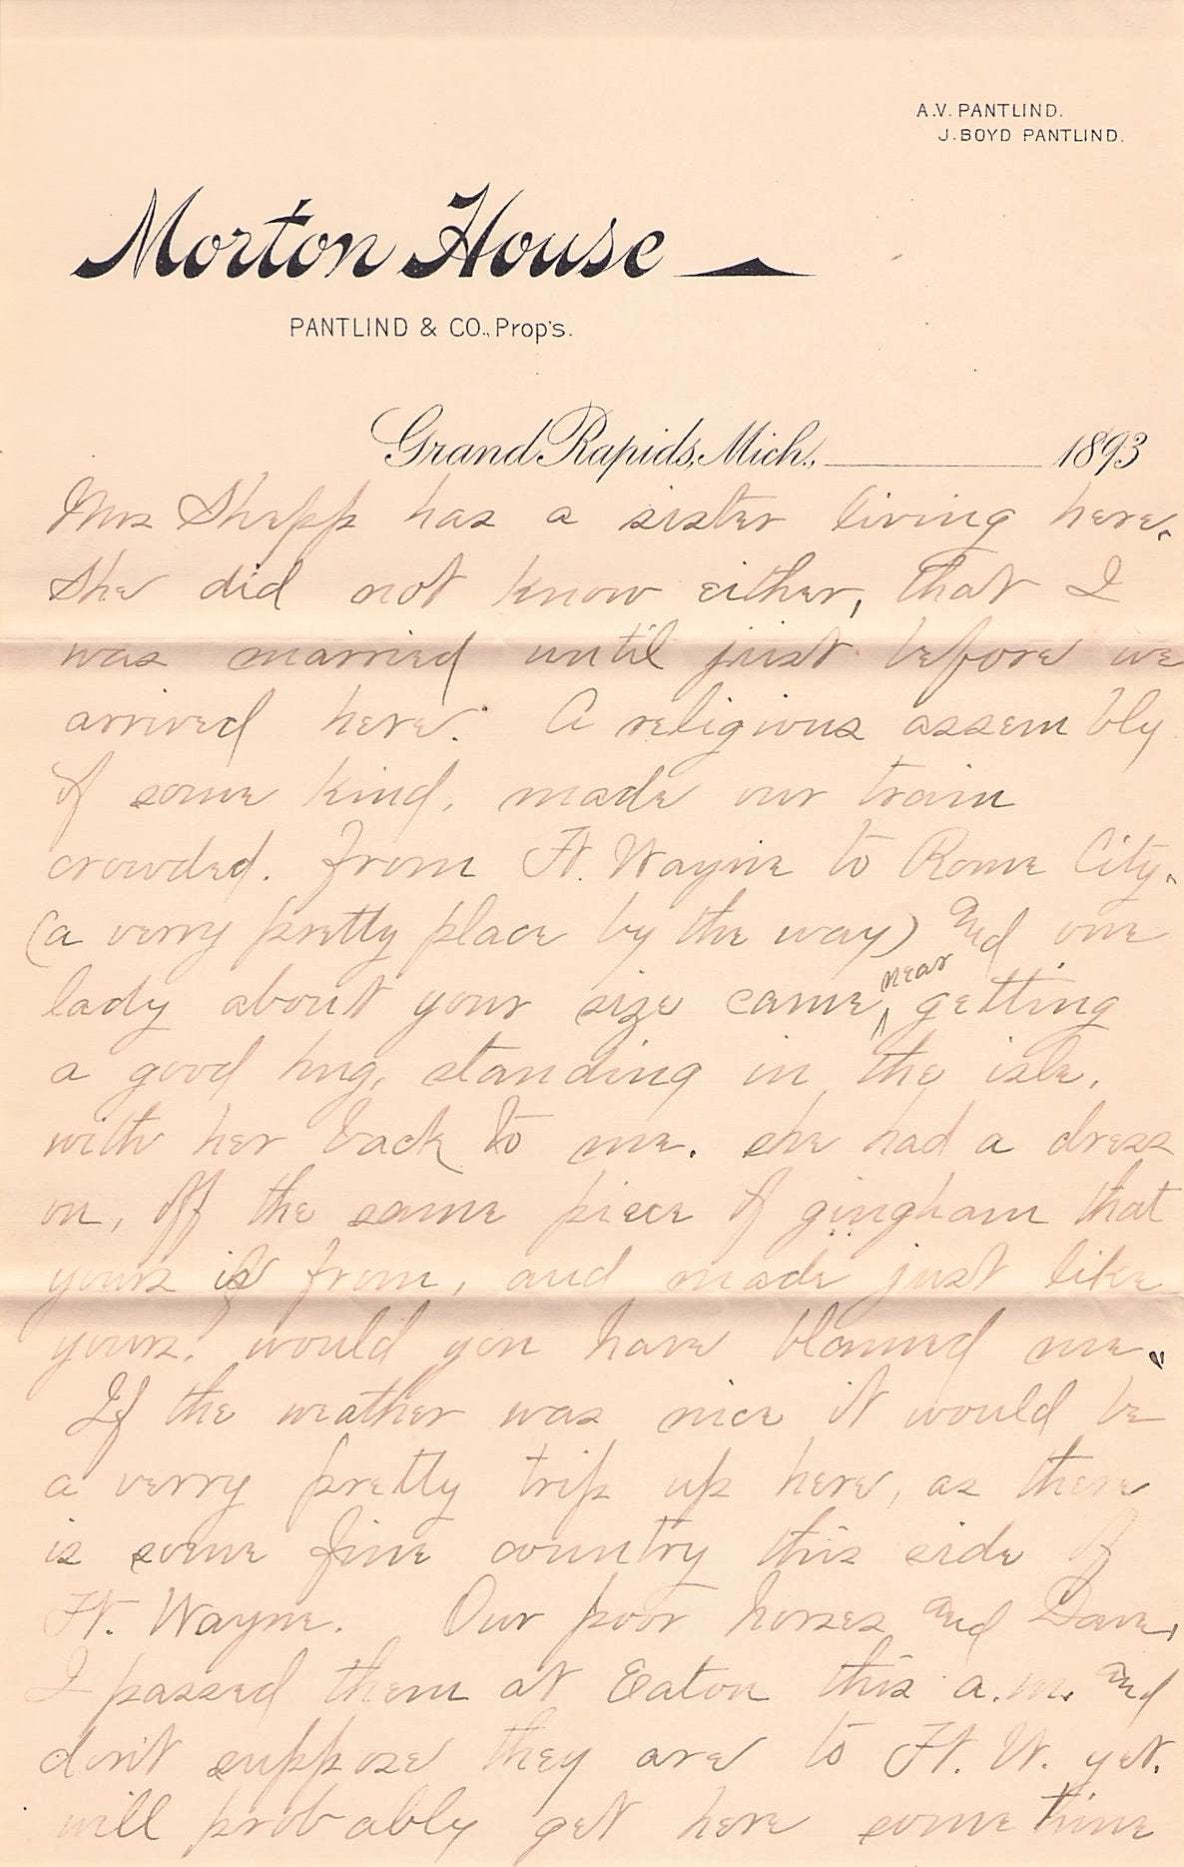 A.V. PANTLIND.
J. BOYD PANTLIND.
Morton House
PANTLIND & CO., Prop's.
Grand Rapids, Mich., 1893
Mrs Shepp has a sister living here.
She did not know either, that I
was married until just before we
arrived here. A religious assembly
of some kind, made our train
crowded. from Ft. Wayne to Rome City.
(a verry pretty place by the way) and one
lady about your size came near getting
a good hug, standing in the isle,
with her back to me. she had a dress
on, off the same piece of gingham that
yours is from, and made just like
yours. would you have blamed me.
If the weather was nice it would be
a verry pretty trip up here, as there
is some fine country this side of
Ft. Wayne. Our poor horses and Dave,
I passed them at Eaton this a.m. and
don't suppose they are to Ft. W. yet.
will probably get here some time